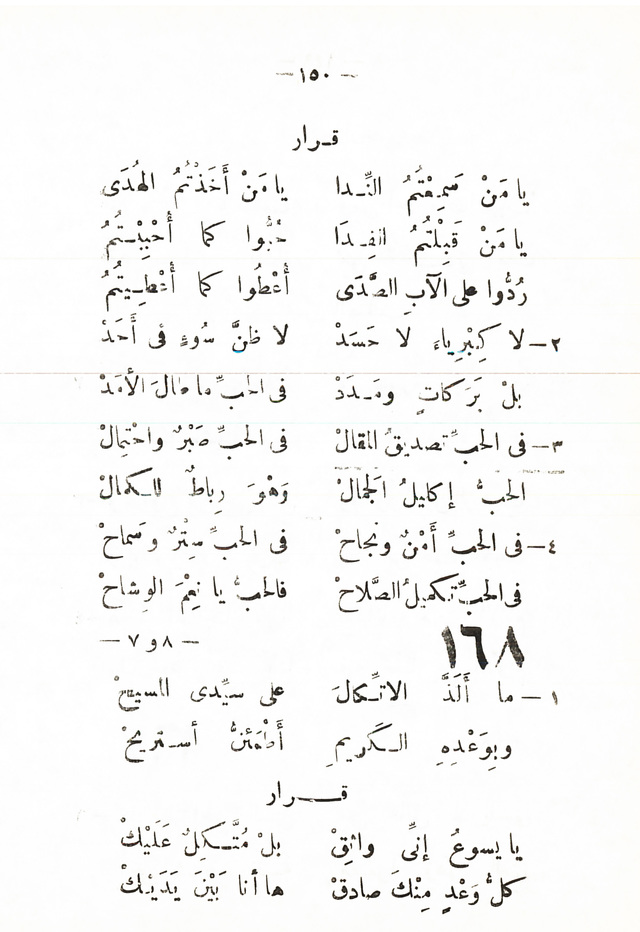 — ١٥٠ —
قـرار
يا مَنْ سَمِعْتُمُ النِّـدا يا مَنْ أَخَذْتُمُ الهُدَى
يا مَنْ قَبِلْتُمُ الفِـدَا حُبُّوا كما أُحْبِبْـتُمُ
رُدُّوا على الآبِ الصَّدَى أَعْطُوا كما أُعْطِـيتُمُ
٢ – لا كِبْرِياءَ لا حَسَدْ لا ظنَّ سُوءٍ فى أَحَدْ
بلْ بَرَكاتٍ ومَـدَدْ فى الحبِّ ما طالَ الأَمَدْ
٣ – فى الحبِّ تصديقُ المقالْ فى الحبِّ صَبْرٌ واحْتِمالْ
الحبُّ إكليلُ الجمالْ وَهْوَ رِباطٌ للـكمالْ
٤ – فى الحبِّ أَمْنٌ ونجاحْ فى الحبِّ سِتْرٌ وسَماحْ
فى الحبِّ تكميلُ الصَّلاحْ فالحبُّ يا نِعْمَ الوِشاحْ
١٦٨ — ٨ و ٧ —
١ – ما أَلَذَّ الاتِّـكالَ على سيِّدى المسيحْ
وبِوَعْدِهِ الـكَريمِ أَطْمَئنُّ أسـتريحْ
قـــرار
يا يسوعُ إنِّى واثِقْ بلْ مُتَّـكِلٌ عَلَيْكْ
كلُّ وَعْدٍ مِنْكَ صادقْ ها أنا بَيْنَ يَدَيْـكْ